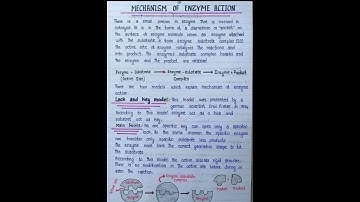 MECHANISM OF ENZYME ACTION
There is a small portion in enzyme that is involved in
catalysis. It is in the form of a depression on
the surface of enzyme molecule. When an enzyme attached
with the substrate, it forms enzyme substrate complex (ES).
The active site of enzyme catalyses the reactions and
into product. The enzyme substrate complex breaks and
the enzyme and the product are released.
Enzyme + Substrate → Enzyme-Substrate → Enzyme + Product
(Active Site) Complex
There are two models which explain mechanism of enzyme
action.
Lock and Key model:- This model was presented by a
german scientist, Emil Fisher in 1894.
According to this model enzyme act as a lock and
substrate act as key.
Main Points:- As one specific key can open only a specific
lock. In the same manner, the specific enzyme
can transfer only specific substrate into products.
The enzyme must have the correct geometric shape to fit
the substrate.
According to this model the active sites are rigid structure.
There is no modification in the active site before, during or
after the reaction.
Enzyme substrate
complex
Product
Product
Enzyme